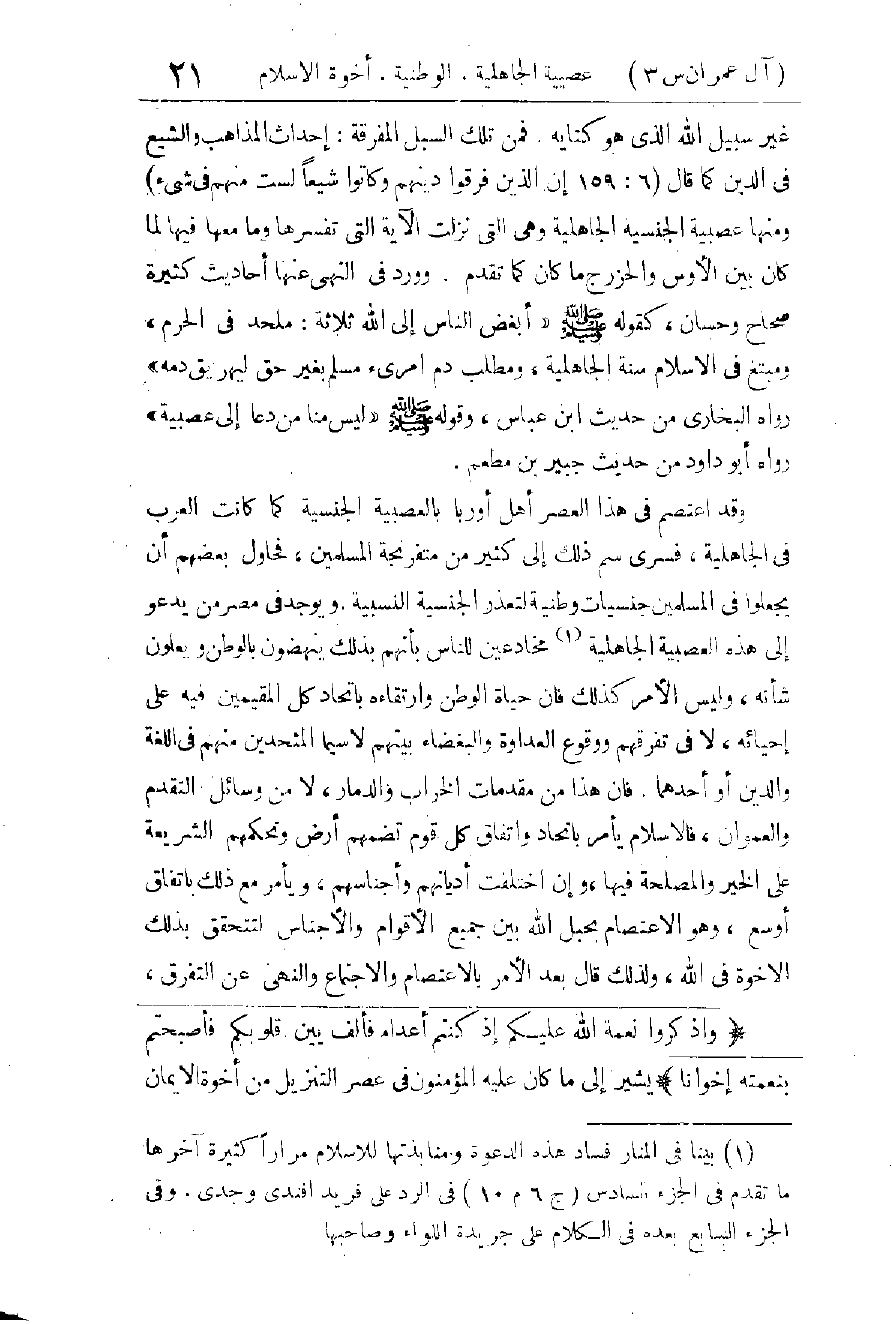 (آل عمران س ٣) عصبية الجاهلية . الوطنية . أخوة الاسلام ٢١
غير سبيل الله الذى هو كتابه . فمن تلك السبل المفرقة : إحداث المذاهب والشيع
فى الدين كما قال (٦ : ١٥٩ إن الذين فرقوا دينهم وكانوا شيعاً لست منهم فى شىء)
ومنها عصبية الجنسية الجاهلية وهى التى نزلت الآية التى تفسرها وما معها فيها لما
كان بين الأوس والخزرج ما كان كما تقدم . وورد فى النهى عنها أحاديث كثيرة
صحاح وحسان ، كقوله ﷺ « أبغض الناس إلى الله ثلاثة : ملحد فى الحرم ،
ومبتغ فى الاسلام سنة الجاهلية ، ومطلب دم امرىء مسلم بغير حق ليهريق دمه »
رواه البخارى من حديث ابن عباس ، وقوله ﷺ « ليس منا من دعا إلى عصبية »
رواه أبو داود من حديث جبير بن مطعم .
وقد اعتصم فى هذا العصر أهل أوربا بالعصبية الجنسية كما كانت العرب
فى الجاهلية ، فسرى سم ذلك إلى كثير من متفرنجة المسلمين ، فحاول بعضهم أن
يجعلوا فى المسلمين جنسيات وطنية لتعذر الجنسية النسبية . ويوجد فى مصر من يدعو
إلى هذه العصبية الجاهلية (١) مخادعين للناس بأنهم بذلك ينهضون بالوطن ويعلون
شأنه ، وليس الأمر كذلك فان حياة الوطن وارتقاءه باتحاد كل المقيمين فيه على
إحيائه ، لا فى تفرقهم ووقوع العداوة والبغضاء بينهم لاسيما المتحدين منهم فى اللغة
والدين أو أحدهما . فان هذا من مقدمات الخراب والدمار ، لا من وسائل التقدم
والعمران ، فالاسلام يأمر باتحاد واتفاق كل قوم تضمهم أرض وتحكمهم الشريعة
على الخير والمصلحة فيها ، وإن اختلفت أديانهم وأجناسهم ، ويأمر مع ذلك باتفاق
أوسع ، وهو الاعتصام بحبل الله بين جميع الأقوام والأجناس لتتحقق بذلك
الاخوة فى الله ، ولذلك قال بعد الأمر بالاعتصام والاجتماع والنهى عن التفرق ،
﴿ واذكروا نعمة الله عليكم إذ كنتم أعداء فألف بين قلوبكم فأصبحتم
بنعمته إخوانا ﴾ يشير إلى ما كان عليه المؤمنون فى عصر التنزيل من أخوة الايمان
(١) بينا فى المنار فساد هذه الدعوة ومنابذتها للاسلام مراراً كثيرة آخرها
ما تقدم فى الجزء السادس ( ج ٦ م ١٠ ) فى الرد على فريد افندى وجدى . وفى
الجزء السابع بعده فى الكلام على جريدة اللواء وصاحبها